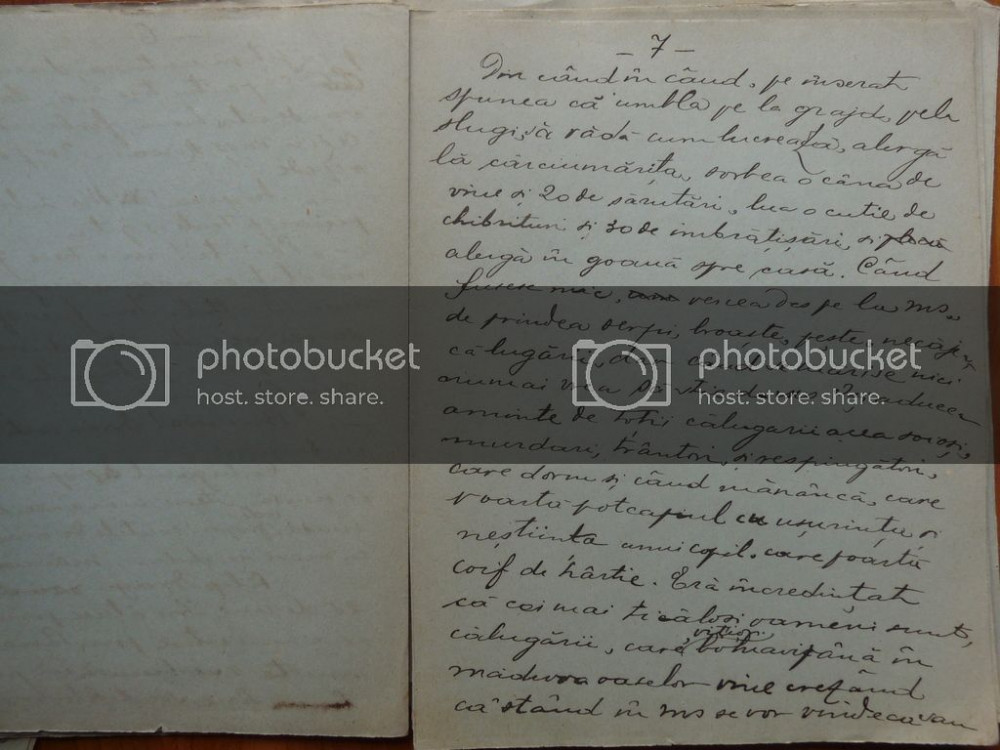 – 7 –
Din când în când, pe înserat
spunea că umbla pe la grajd, pela
slugi, să vadă cum lucrează, alergă
la cârciumărița, sorbea o cână de
vine și 20 de sărutări, lua o cutie de
chibrituri și 30 de imbrățișări, și
alergă în goană spre casă. Când
fusese mic, venea des pe la ms.
de prindea șerpi, broaște, pește,
călugării, nici
numai aducea
aminte de toții călugarii acea soioși,
murdari, trântori, și respingători,
care dorm și când mănâncă, care
poartă potcapiul cu ușurința și
neștiinta unui copil, care poartă
coif de hârtie. Erà încredințat
că cei mai ticăloși oameni sunt,
călugării, care vițioși până în
măduva oaselor vine crezând
că stând în ms se vor vindeca sau
photobucket
host. store. share.
photobucket
host. store. share.